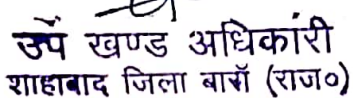 उप खण्ड अधिकारी
शाहाबाद जिला बारॉ (राज०)